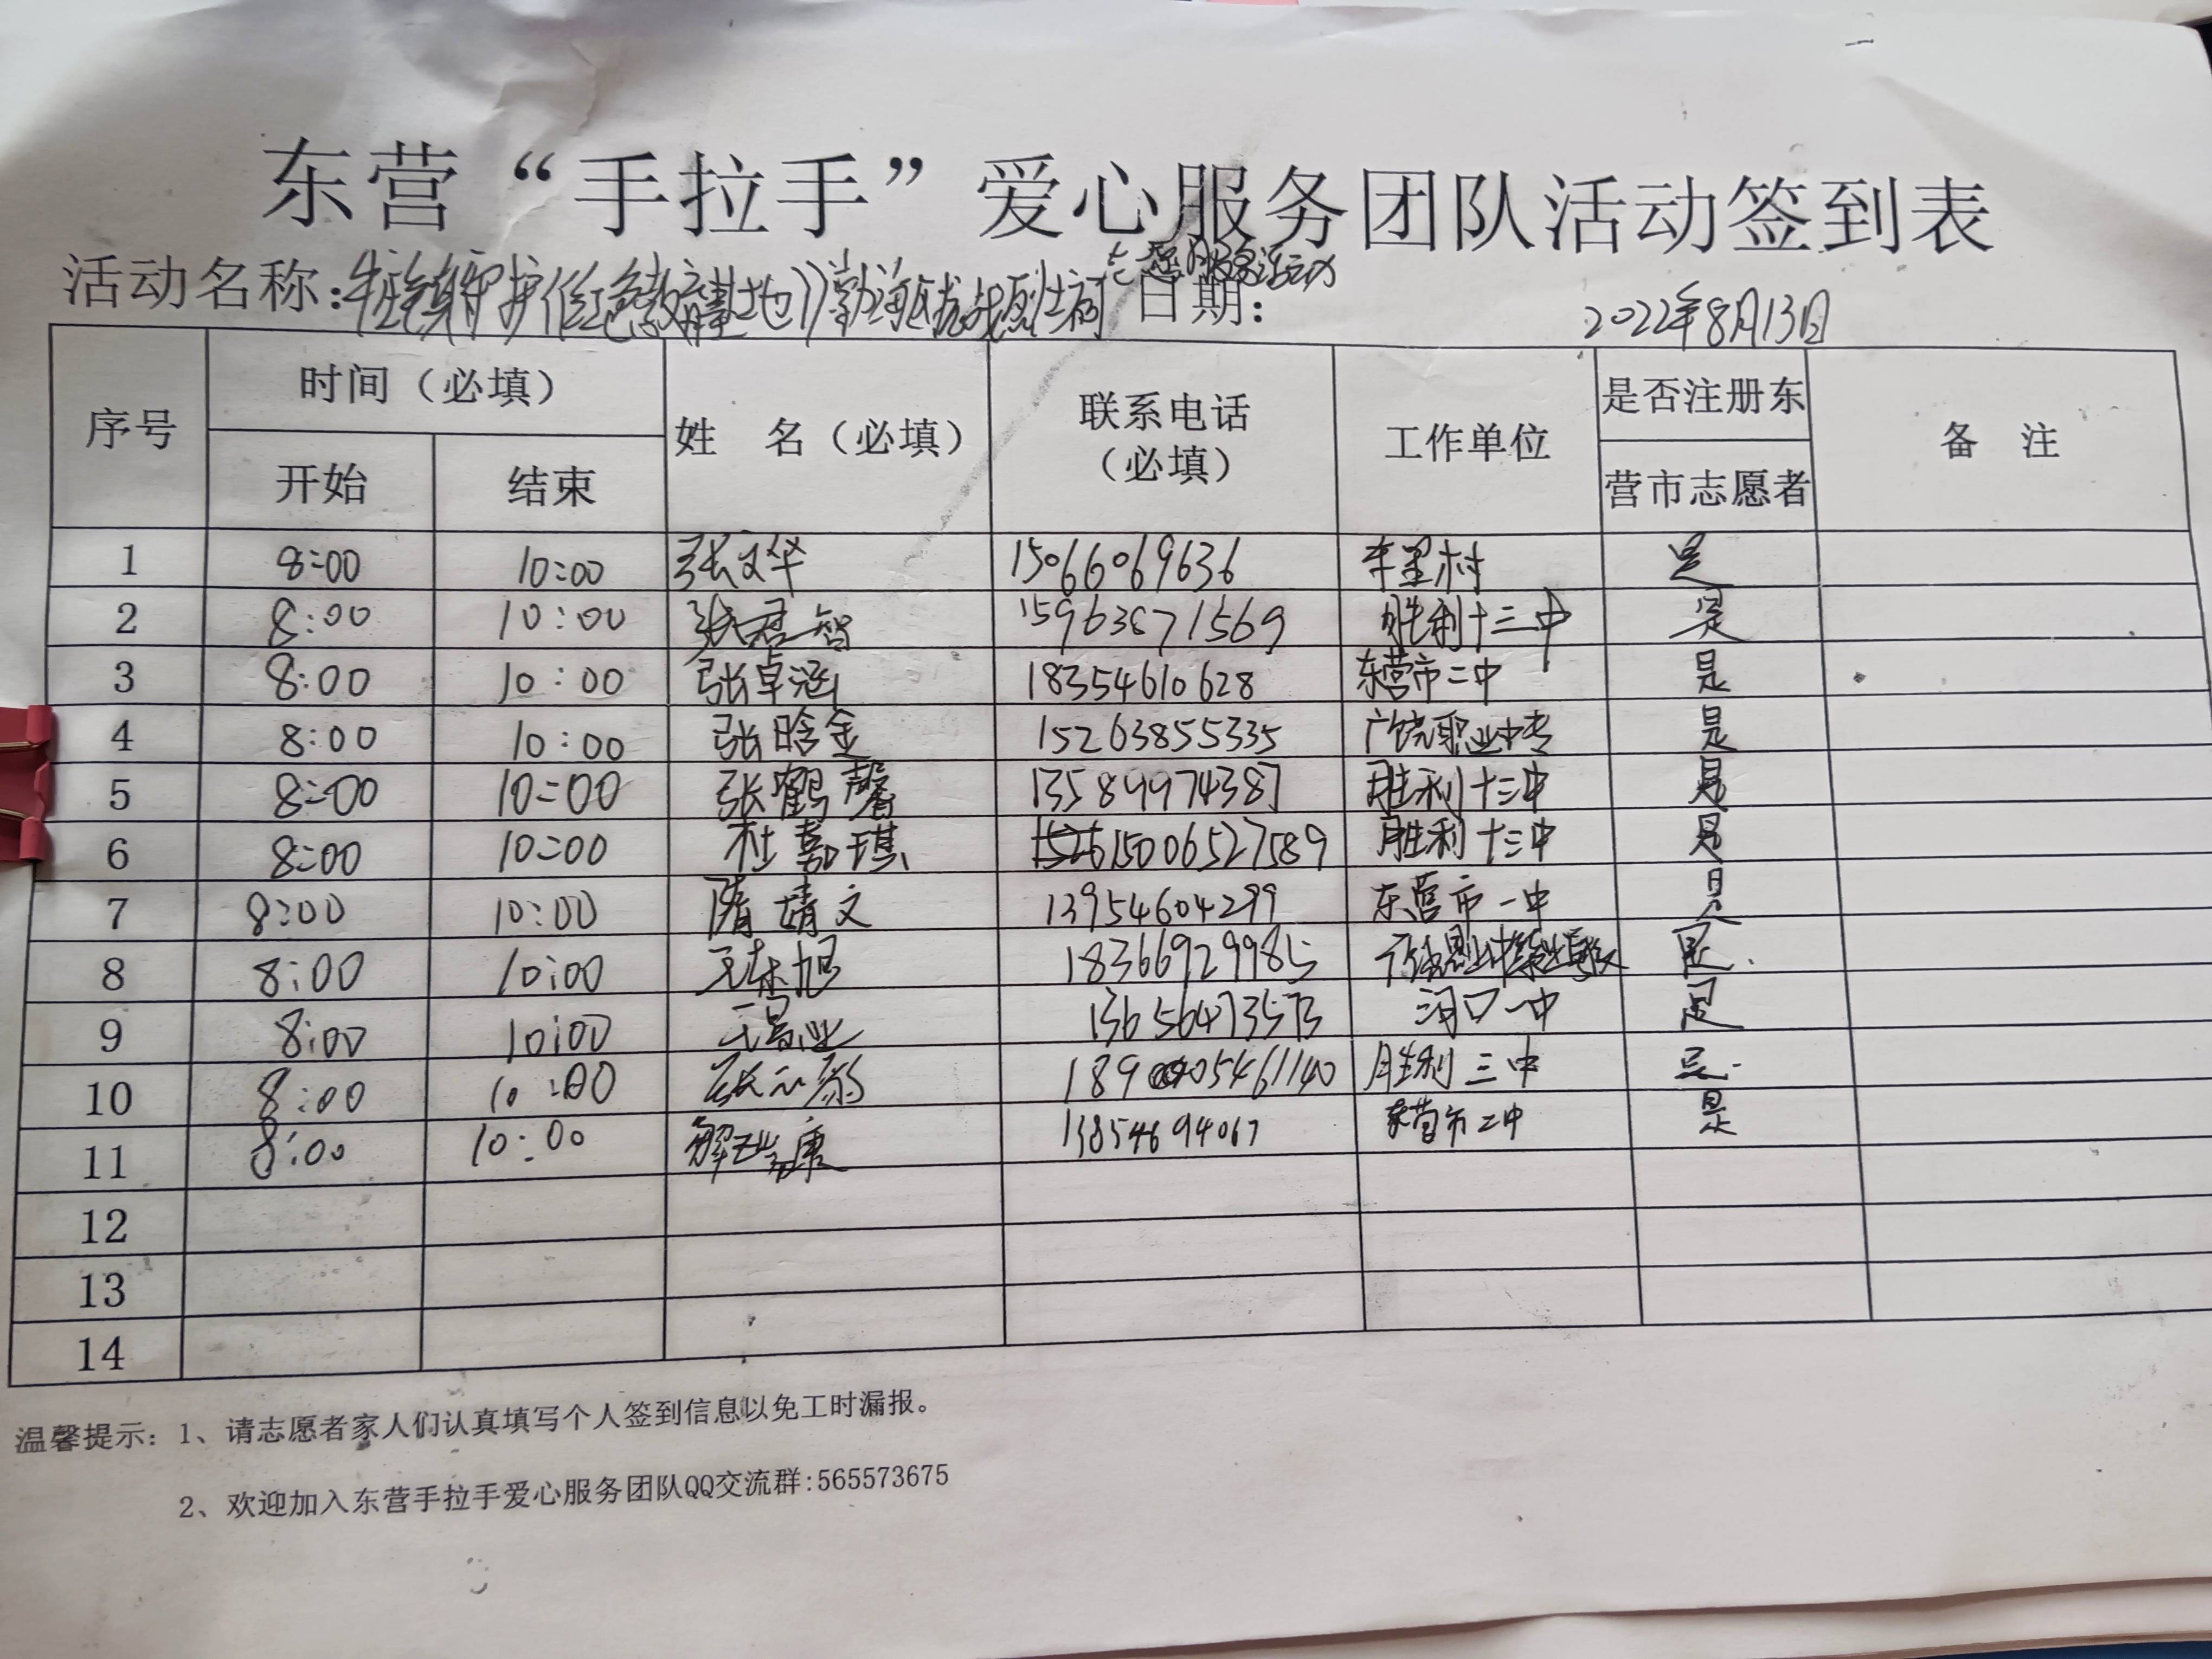 东营“手拉手”爱心服务团队活动签到表
活动名称：牛庄镇守护红色教育基地 渤海区抗战烈士祠志愿服务活动 日期： 2022年8月13日
序号 时间（必填） 姓 名（必填） 联系电话（必填） 工作单位 是否注册东营市志愿者 备 注
开始 结束
1 8:00 10:00 张文华 15066069636 村 是
2 8:00 10:00 张君智 15963871569 胜利十三中 是
3 8:00 10:00 张卓涵 18354610628 东营市二中 是
4 8:00 10:00 张晗金 15263855335 广饶职业中专 是
5 8:00 10:00 张鹤馨 13589974387 胜利十三中 是
6 8:00 10:00 杜嘉琪 15006527589 胜利十三中 是
7 8:00 10:00 隋婧文 13954604299 东营市一中 是
8 8:00 10:00 旭 18366929985 是
9 8:00 10:00 13656473573 河口一中 是
10 8:00 10:00 胜利三中 是
11 8:00 10:00 解瑞康 13854694067 东营市二中 是
12
13
14
温馨提示：1、请志愿者家人们认真填写个人签到信息以免工时漏报。
2、欢迎加入东营手拉手爱心服务团队QQ交流群:565573675